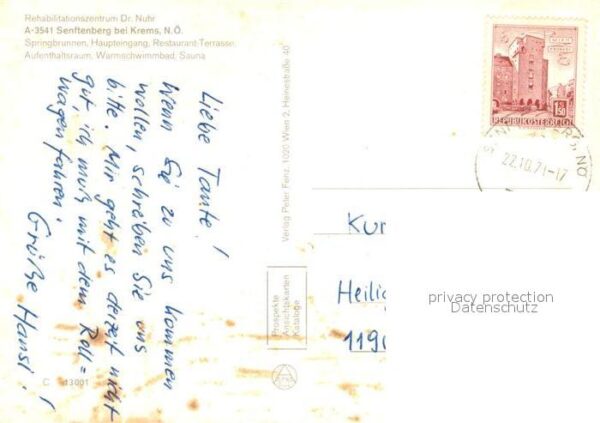 Rehabilitationszentrum Dr. Nuhr
A-3541 Senftenberg bei Krems, N.Ö.
Springbrunnen, Haupteingang, Restaurant-Terrasse,
Aufenthaltsraum, Warmschwimmbad, Sauna
Liebe Tante!
Wenn Sie zu uns kommen
wollen, schreiben Sie uns
bitte. Mir geht es derzeit nicht
gut, ich muß mit dem Roll=
wagen fahren.
Grüße Hansi!
C 13001
Verlag Peter Fenz, 1020 Wien 2, Heinestraße 40
Prospekte
Ansichtskarten
Kataloge
1.50
REPUBLIK ÖSTERREICH
22.10.71-17
Kur
Heilig
1190
privacy protection
Datenschutz